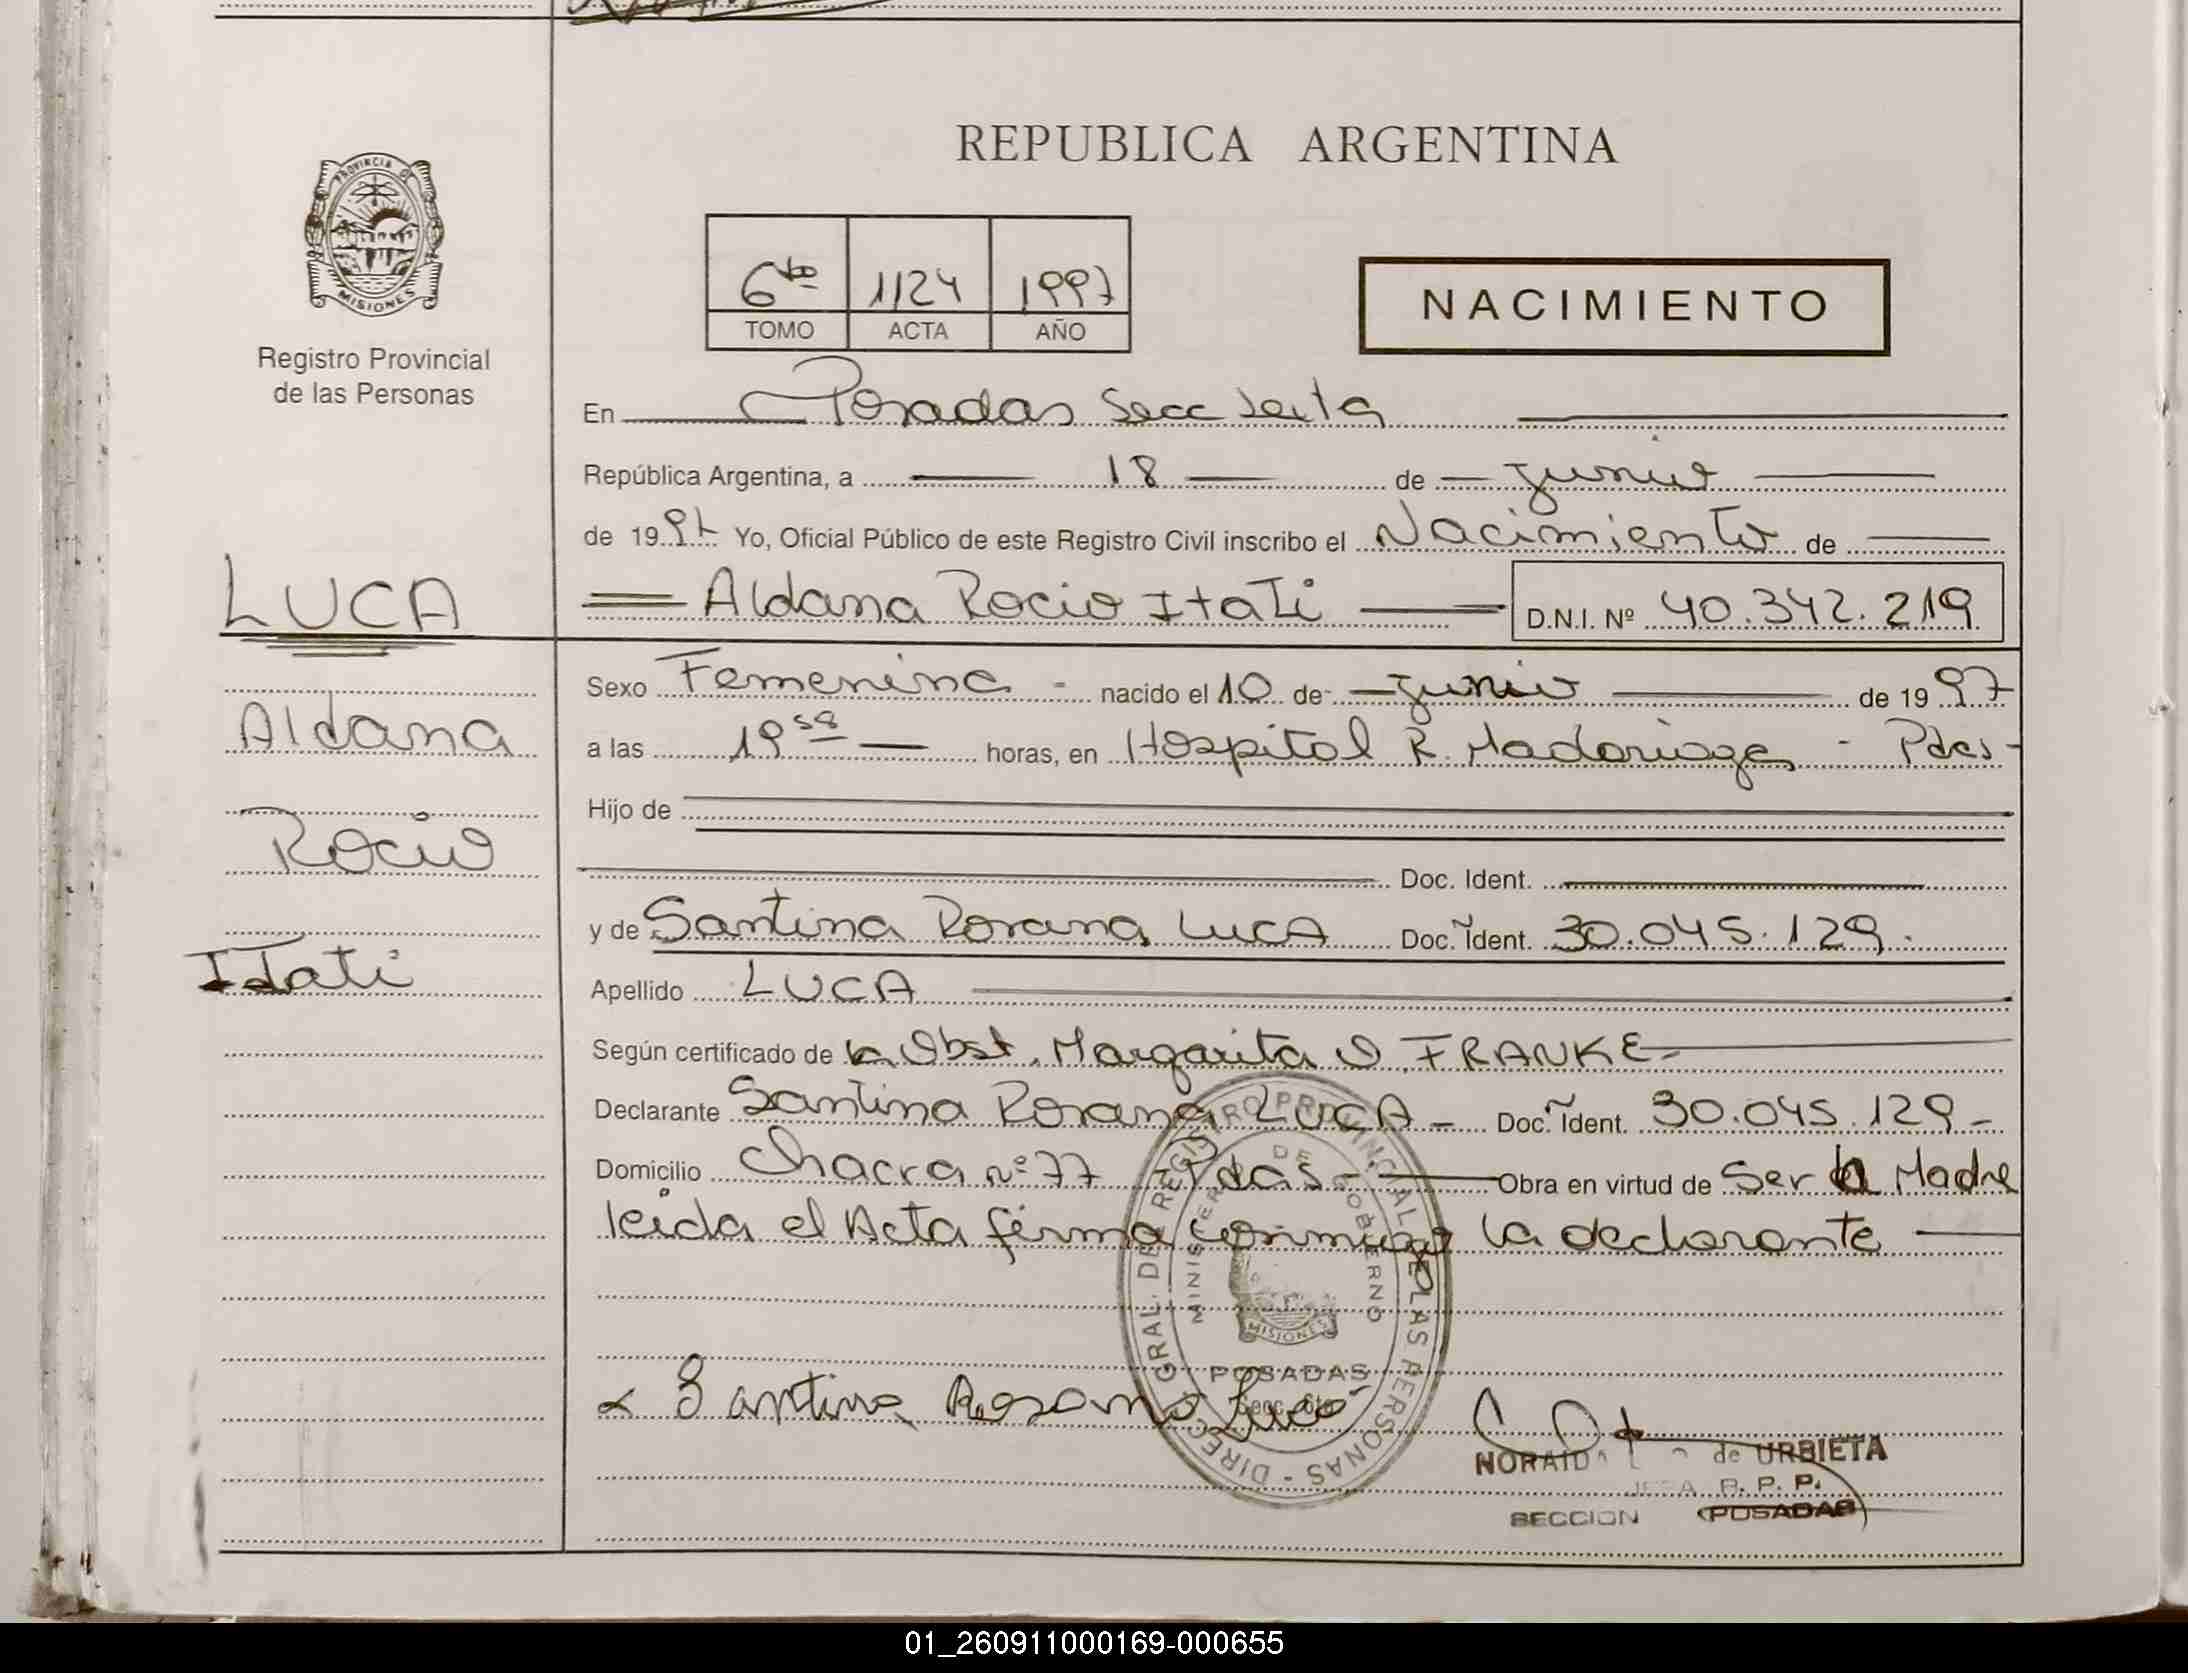 REPUBLICA ARGENTINA
PROVINCIA D
MISIONES
Registro Provincial
de las Personas
6to 1124 1997
TOMO ACTA AÑO
NACIMIENTO
En Posadas Secc Sexta
República Argentina, a 18 de Junio
de 1997 Yo, Oficial Público de este Registro Civil inscribo el Nacimiento de
LUCA
Aldana Rocio Itati D.N.I. Nº 40.342.219
Sexo Femenino nacido el 10 de Junio de 1997
Aldana
a las 19 58 horas, en Hospital R. Madariaga - Pdas-
Hijo de
Rocio
Doc. Ident.
y de Santina Rosana LUCA Doc. Ident. 30.045.129.
Itati
Apellido LUCA
Según certificado de la Obst. Margarita O FRANKE-
Declarante Santina Rosana LUCA - Doc. Ident. 30.045.129-
Domicilio Chacra nº 77 Pdas- Obra en virtud de Ser la Madre
leida el Acta firma conmigo la declarante
DIRECC. GRAL. DE REGISTRO PROVINCIAL DE LAS PERSONAS
MINISTERIO DE GOBIERNO
MISIONES
POSADAS
Secc. 6ta
Santina Rosana Luca
NORAIDA de URBIETA
JEFA R. P. P.
SECCION POSADAS
01_260911000169-000655